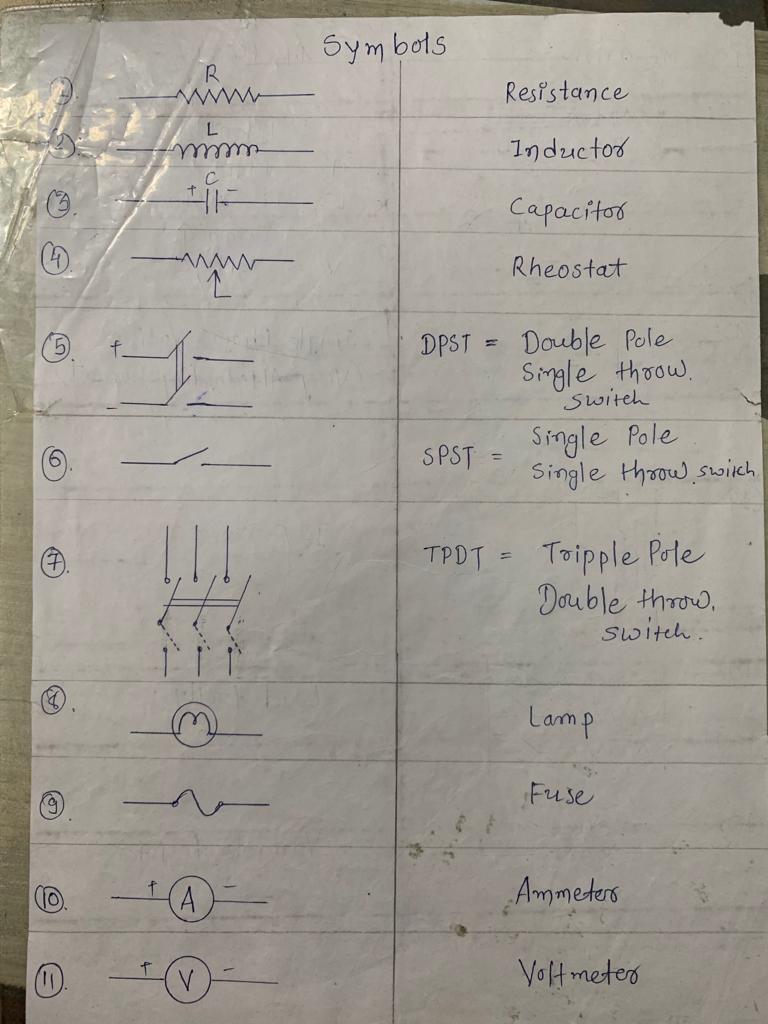 Symbols
1. R Resistance
2. L Inductor
3. + C - Capacitor
4. Rheostat
5. + - DPST = Double Pole
Single throw.
switch
6. SPST = Single Pole
Single throw switch
7. TPDT = Tripple Pole
Double throw.
switch.
8. Lamp
9. Fuse
10. + A - Ammeter
11. + V - Voltmeter